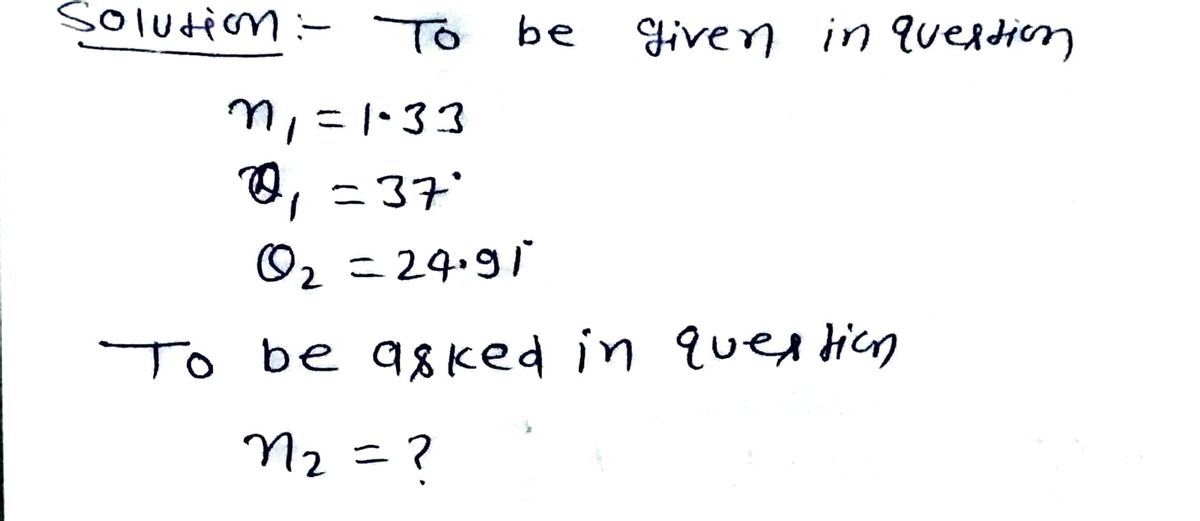 Solution :- To be given in question
n₁ = 1.33
θ₁ = 37°
θ₂ = 24.91°
To be asked in question
n₂ = ?